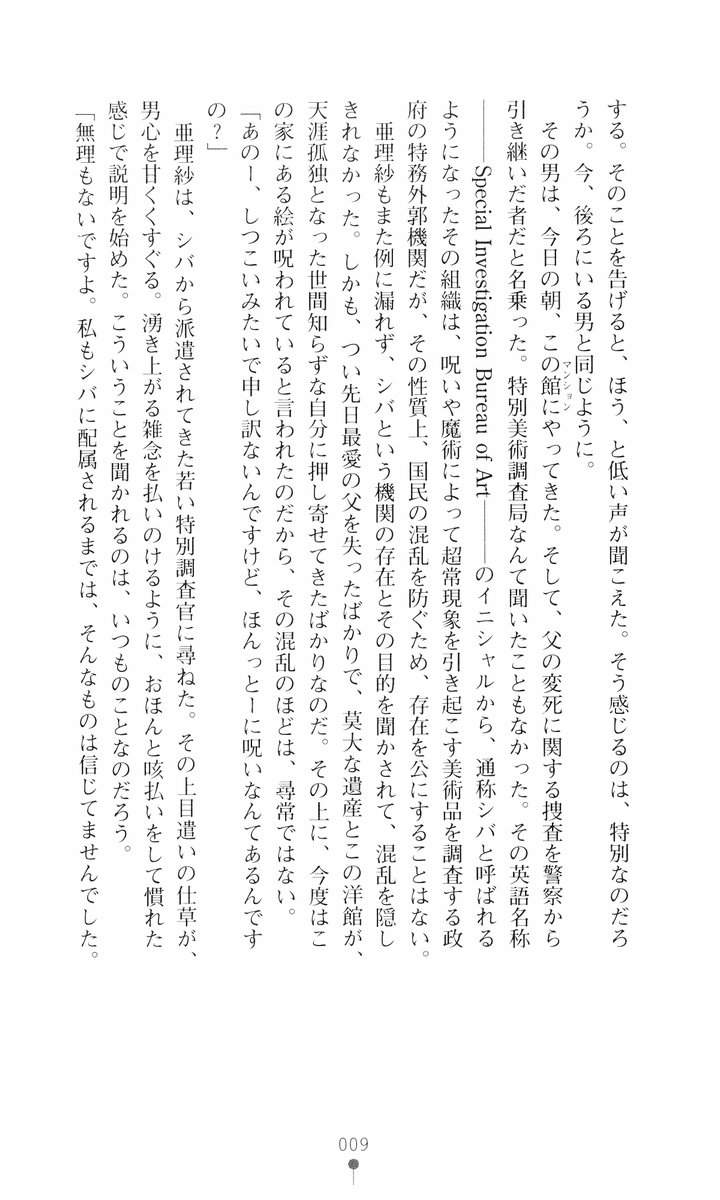 する。そのことを告げると、ほう、と低い声が聞こえた。そう感じるのは、特別なのだろ
うか。今、後ろにいる男と同じように。
その男は、今日の朝、この館マンションにやってきた。そして、父の変死に関する捜査を警察から
引き継いだ者だと名乗った。特別美術調査局なんて聞いたこともなかった。その英語名称
――Special Investigation Bureau of Art――のイニシャルから、通称シバと呼ばれる
ようになったその組織は、呪いや魔術によって超常現象を引き起こす美術品を調査する政
府の特務外郭機関だが、その性質上、国民の混乱を防ぐため、存在を公にすることはない。
亜理紗もまた例に漏れず、シバという機関の存在とその目的を聞かされて、混乱を隠し
きれなかった。しかも、つい先日最愛の父を失ったばかりで、莫大な遺産とこの洋館が、
天涯孤独となった世間知らずな自分に押し寄せてきたばかりなのだ。その上に、今度はこ
の家にある絵が呪われていると言われたのだから、その混乱のほどは、尋常ではない。
「あのー、しつこいみたいで申し訳ないんですけど、ほんっとーに呪いなんてあるんです
の？」
亜理紗は、シバから派遣されてきた若い特別調査官に尋ねた。その上目遣いの仕草が、
男心を甘くくすぐる。湧き上がる雑念を払いのけるように、おほんと咳払いをして慣れた
感じで説明を始めた。こういうことを聞かれるのは、いつものことなのだろう。
「無理もないですよ。私もシバに配属されるまでは、そんなものは信じてませんでした。
009